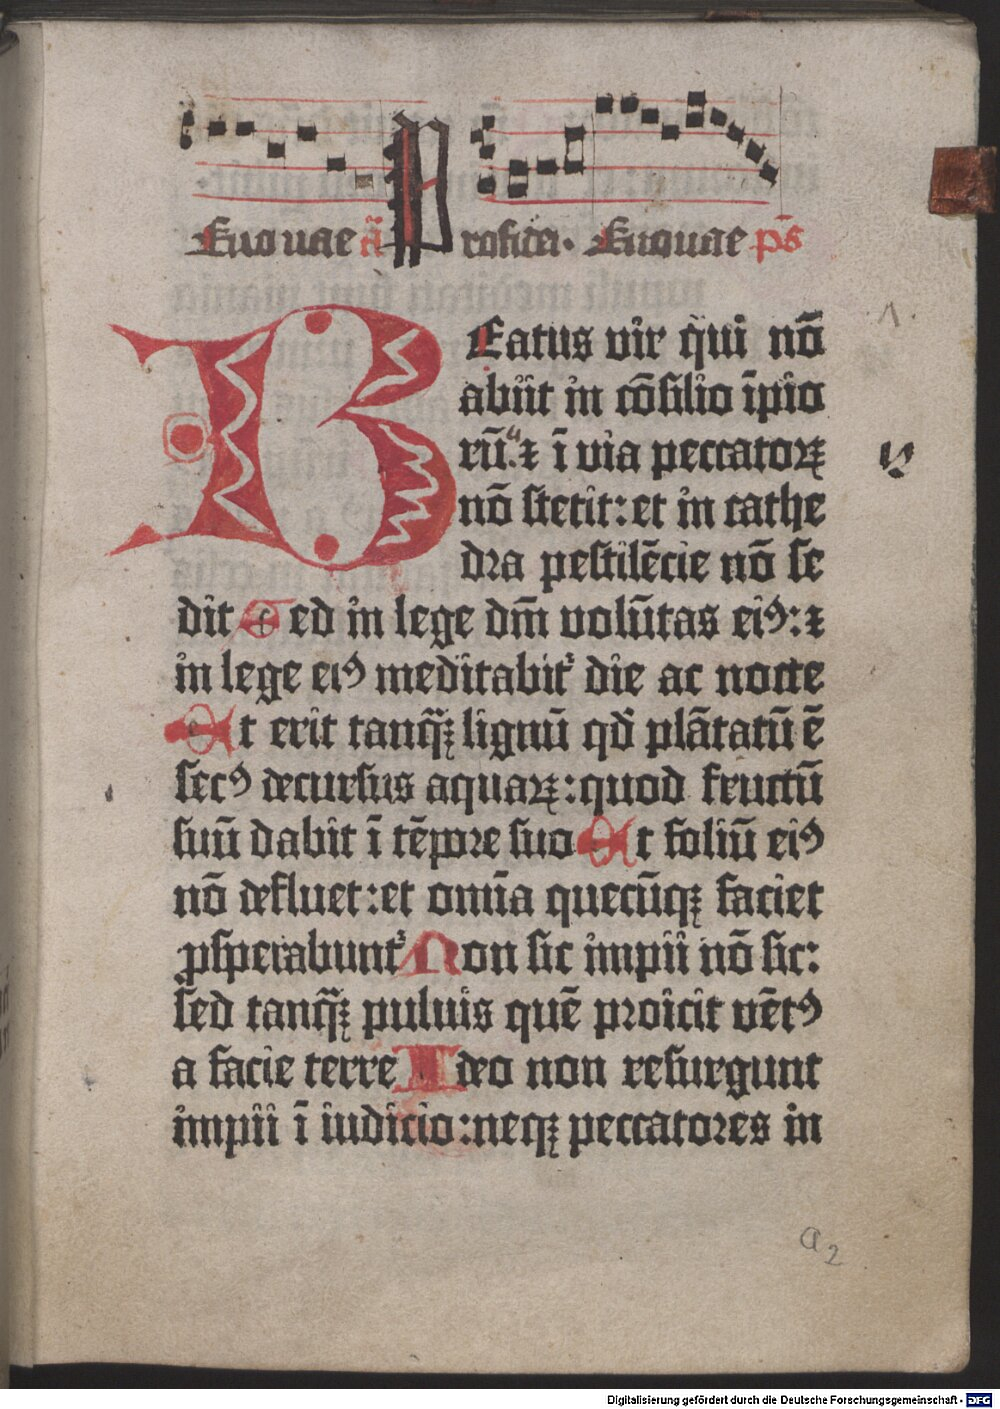 Euouae añ Pro fidei. Euouae p̄s
1.
BEatus vir qui nō
abiit in cōsilio īpio
rū. ⁊ ī via peccatoꝝ
nō stetit: et in cathe
dra pestilēcie nō se
dit Sed in lege dn̄i volūtas eiꝰ: ⁊
in lege eiꝰ meditabit̉ die ac nocte
Et erit tanq̄ꝫ lignū qd̄ plātatū ē
secꝰ decursus aquaꝝ: quod fructū
suū dabit ī tēpore suo Et foliū eiꝰ
nō defluet: et omīa quecūqꝫ faciet
ꝓsperabunt̉ Non sic impii nō sic:
sed tanq̄ꝫ puluis quē proicit vētꝰ
a facie terre Ideo non resurgunt
impii ī iudicio: neqꝫ peccatores in
a2
Digitalisierung gefördert durch die Deutsche Forschungsgemeinschaft - DFG